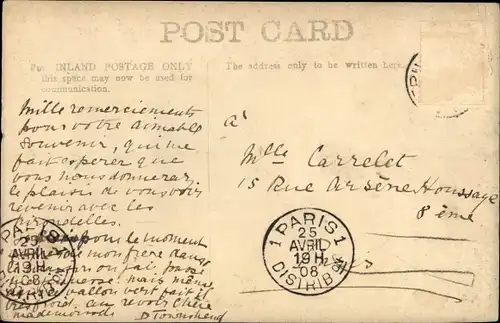 POST CARD
For INLAND POSTAGE ONLY
this space may now be used for
communication.
The address only to be written here.
Mille remerciements
pour votre aimable
Souvenir, qui me
fait espérer que
vous nous donnerez
le plaisir de vous voir
revenir avec les
hirondelles.
pour le moment
mon frère dans
mais même
vallon vert fait
froid, au revoir chère
mademoiselle D Townshend
à
Mlle Carrelet
15 Rue Arsène Houssaye
8ème
Paris
1 PARIS 1
25
AVRIL
19 H
08
DISTRIB
PARIS
25
AVRIL
19 H
08
DISTRIB